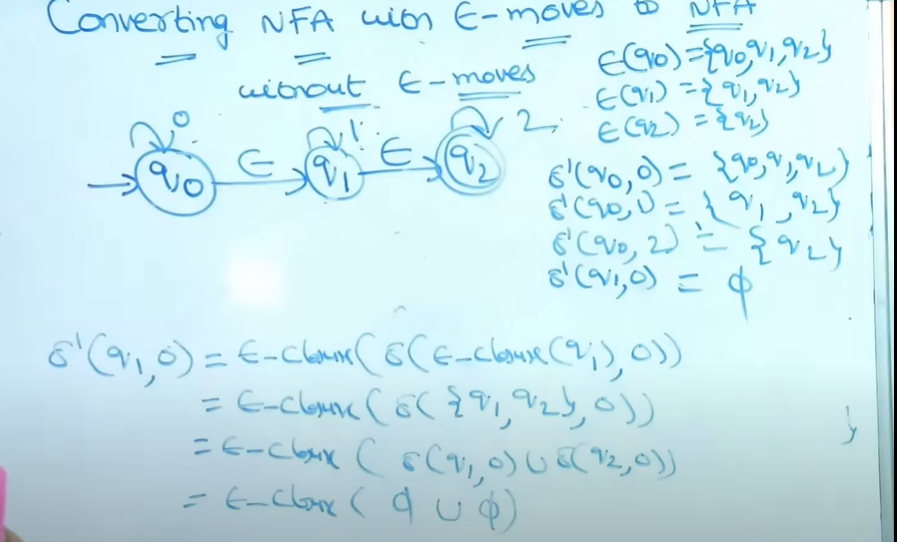 Converting NFA with ε-moves to NFA
without ε-moves
ε(q0)={q0,q1,q2}
ε(q1) = {q1,q2}
ε(q2) = {q2}
0 1 2
q0 ε q1 ε q2
δ'(q0,0) = {q0,q1,q2}
δ'(q0,1) = {q1,q2}
δ'(q0,2) = {q2}
δ'(q1,0) = ϕ
δ'(q1,0) = ε-closure(δ(ε-closure(q1),0))
= ε-closure(δ({q1,q2},0))
= ε-closure(δ(q1,0)∪δ(q2,0))
= ε-closure(ϕ ∪ ϕ)
}